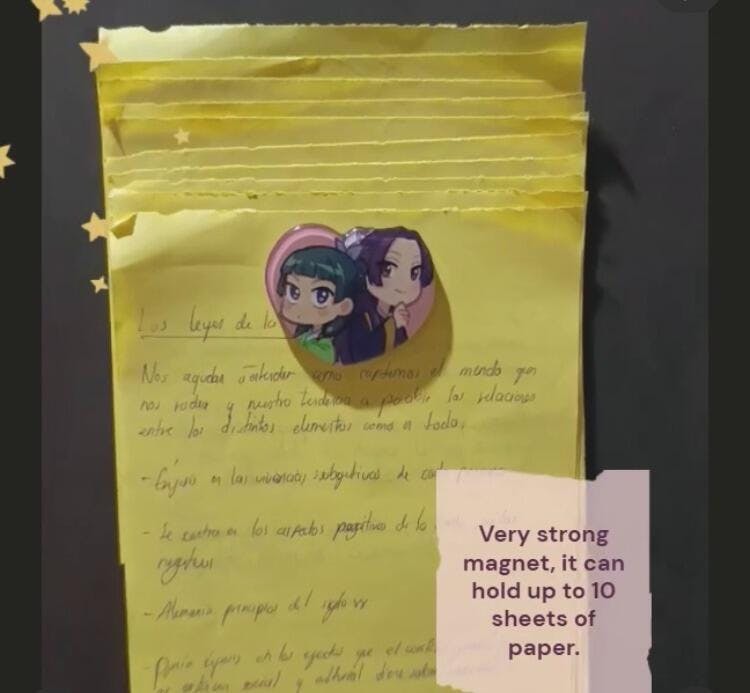 Los leyes de la
Nos ayudan entender como captamos el mundo que
nos rodea y nuestra tendencia a percibir las relaciones
entre los distintos elementos como a todo.
- Énfasis en las vivencias subjetivas de cada
- Se centra en los aspectos positivos de la
negativas
- Alemania principios del siglo XX
en los efectos que el
social y cultural
Very strong
magnet, it can
hold up to 10
sheets of
paper.